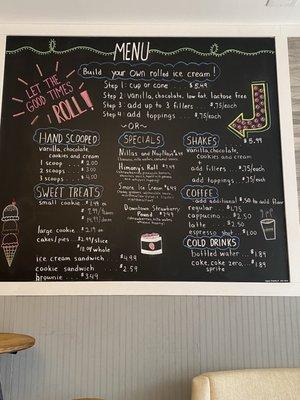 MENU
LET THE
GOOD TIMES
ROLL!
Build your own rolled ice cream!
Step 1: cup or cone .. $5.49
Step 2: vanilla, chocolate, low fat, lactose free
Step 3: add up to 3 fillers .. $.75/each
Step 4: add toppings ... $.75/each
~OR~
HAND SCOOPED
vanilla, chocolate,
cookies and cream
1 scoop $2.00
2 scoops $3.00
3 scoops $4.00
SWEET TREATS
small cookie .. $1.49
large cookie .. $2.19
cakes/pies .. $2.99/slice
ice cream sandwich ... $4.99
cookie sandwich ... $2.59
brownie .. $3.49
SPECIALS
Nillas and
Himany's Roll
Smore Ice Cream
Downtown Strawberry
Pound $7.49
SHAKES
vanilla, chocolate,
cookies and cream
$5.99
+
add fillers ... $.75/each
+
add toppings ... $.75/each
COFFEE
add additional $.50 to add flavor
regular .. $1.75
cappucino .. $2.50
latte .. $2.50
espresso shot .. $1.00
COLD DRINKS
bottled water ... $1.89
coke, coke zero, .. $1.89
sprite